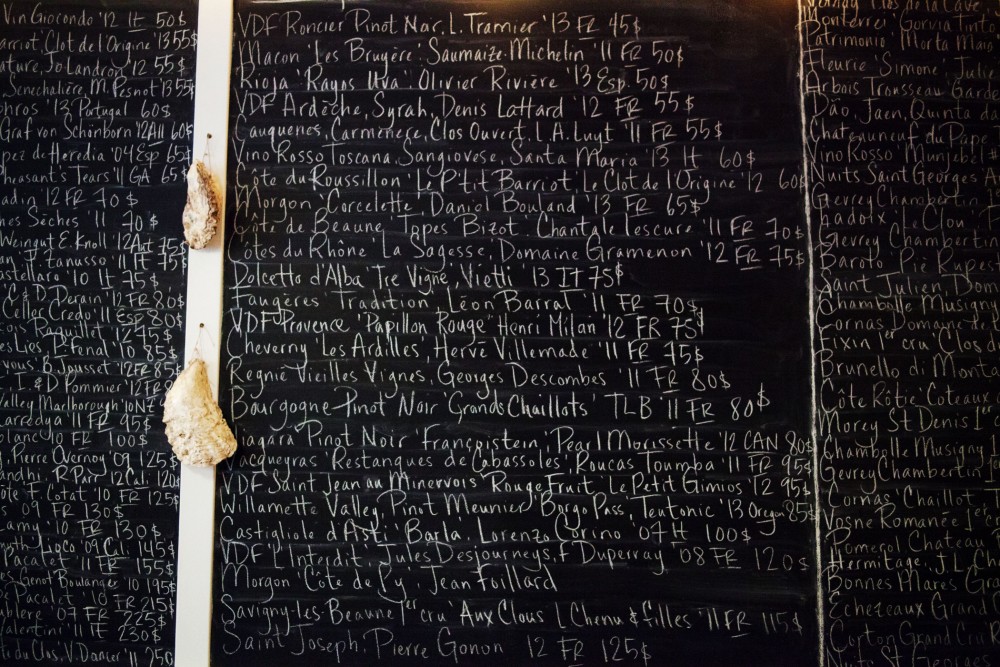 Vin Giocondo '12 It 50$
arriot, Clot de l'Origine '13 55$
ature, Jo Landron '12 55$
Senechalière, M. Pesnot '13 55$
'13 Portugal 60$
Graf von Schönborn '12 All 60$
pez de Heredia '04 Esp 65$
heasant's Tears '11 GA 65$
adin '12 FR 70$
es Sèches '11 70$
Weingut E. Knoll '12 Aut 75$
'11 It 75$
astellaro '10 It 75$
C & D. Derain '12 FR 80$
celles Credo '11 Esp 80$
85$
vous, B. Jousset '12 FR 85$
I. & D Pommier '12 FR
alley Marlborough '10 NZ
arredya '11 FR 95$
olanc '10 FR 100$
Pierre Overnoy '09 125$
andhi, R. Parr '12 Cal. 120$
ote F. Cotat '10 FR 125$
s '09 FR 130$
amy '10 FR 130$
'09 Cali 145$
Pacalet '11 FR 155$
es Genot Boulanger '10 195$
Pacalet '10 FR 215$
ublere '07 FR 225$
alentini '11 It 230$
du Clos, V. Dancer '11 250
VDF Roncier Pinot Noir, L. Tramier '13 FR 45$
Macon 'Les Bruyère', Saumaize-Michelin '11 FR 50$
Rioja 'Rayos Uva', Olivier Rivière '13 Esp. 50$
VDF Ardèche, Syrah, Denis Lattard '12 FR 55$
Cauquenes, Carmenere, Clos Ouvert, L.A. Luyt '11 FR 55$
Vino Rosso Toscana, Sangiovese, Santa Maria '13 It 60$
Côte du Roussillon 'Le P'tit Barriot', Le Clot de l'Origine '12 60$
Morgon 'Corcelette', Daniel Bouland '13 FR 65$
Côte de Beaune, 'Topes Bizot', Chantale Lescure '11 FR 70$
Cotes du Rhône 'La Sagesse', Domaine Gramenon '12 FR 75$
Dolcetto d'Alba 'Tre Vigne', Vietti '13 IT 75$
Faugères 'Tradition', Léon Barral '11 FR 70$
VDF Provence 'Papillon Rouge' Henri Milan '12 FR 75$
Cheverny 'Les Ardilles', Hervé Villemade '11 FR 75$
Regnié Vieilles Vignes, Georges Descombes '11 FR 80$
Bourgogne Pinot Noir 'Grands Chaillots' TLB '11 FR 80$
Niagara Pinot Noir 'Francpistein', Pearl Morissette '12 CAN 80$
Vacqueyras 'Restanques de Cabassoles', Roucas Toumba '11 FR 95$
VDF Saint Jean au Minervois 'Rouge Fruit' Le Petit Gimios '12 95$
Willamette Valley Pinot Meunier 'Borgo Pass', Teutonic '13 Oregon 85$
Castigliole d'Asti 'Barla', Lorenzo Corino '07 It 100$
VDF 'L'Interdit', Jules Desjourneys, F. Duperray '08 FR 120$
Morgon 'Côte de Py', Jean Foillard
Savigny-les-Beaune 1er cru 'Aux Clous', L. Chenu & filles '11 FR 115$
Saint Joseph, Pierre Gonon 12 FR 125$
Monterrei 'Gorvia Tinto
Patrimonio 'Morta Maio
Fleurie 'Simone' Julie
Arbois Trousseau Garde
Dão, Jaen, Quinta da
Chateauneuf du Pape
Vino Rosso 'Munjebel
Nuits Saint Georges
Gevrey Chambertin
Ladoix 'Le Clou
Gevrey Chambertin
Barolo 'Piè Rupest
Saint Julien, Dom
Chambolle Musigny
Cornas Domaine de
Fixin 1er cru 'Clos d
Brunello di Monta
Côte Rôtie 'Coteaux
Morey St Denis 1
Chambolle Musigny
Gevrey Chambertin
Cornas 'Chaillot'
Vosne Romanée 1er
Pomerol Chateau
Hermitage, J.L. Ch
Bonnes Mares Gra
Echezeaux Grand
Corton Grand Cru
Nuits St Georges